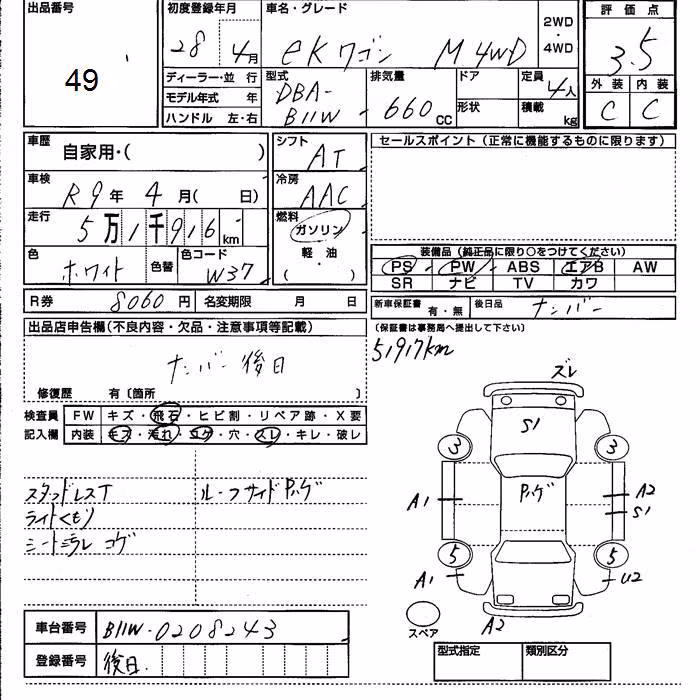 出品番号
49
初度登録年月
28年4月
車名・グレード
eKワゴン M 4WD
2WD
・
4WD
評価点
3.5
外装 内装
C C
ディーラー・並 行
モデル年式 年
ハンドル 左・右
型式
DBA-
B11W
排気量
660 CC
ドア
形状
定員
4人
積載
kg
車歴
自家用・( )
シフト
AT
セールスポイント(正常に機能するものに限ります)
車検
R9年4月( 日)
冷房
AAC
走行
5万1千916km
燃料
ガソリン
軽・油
( )
色
ホワイト
色替
色コード
W37
装備品(純正品に限り○をつけてください)
PS PW ABS エアB AW
SR ナビ TV カワ
R券 8060円 名変期限 月 日
新車保証書 有・無 後日品 ナンバー
(保証書は事務局へ提出して下さい)
出品店申告欄(不良内容・欠品・注意事項等記載)
51917km
ナンバー後日
修復歴 有〔箇所 〕
検査員
記入欄
FW キズ・飛石・ヒビ割・リペア跡・X要
内装 キズ・汚れ・コゲ・穴・スレ・キレ・破レ
スタッドレスT
ルーフサイドPハゲ
ライトくもり
シート
スレ コゲ
ズレ
S1
3 3
Pハゲ
A1
A2
S1
5 5
A1
U2
A2
スペア
車台番号 B11W-0208243
登録番号 後日
型式指定 類別区分